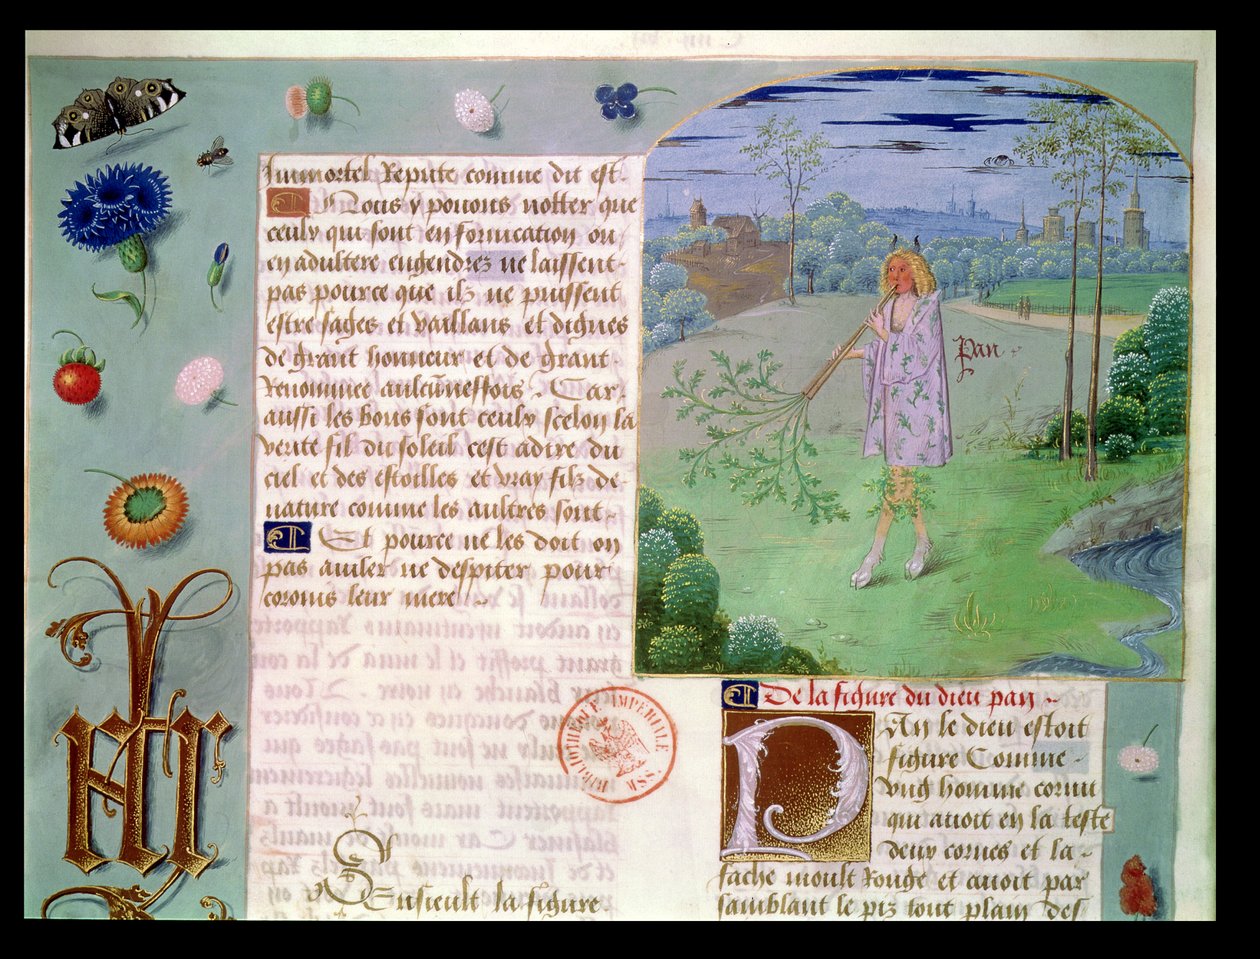 Immortel Repute comme dit est.
Nous y pouons notter que
ceulx qui sont en fornication ou
en adultere engendrez ne laissent
pas pource que ilz ne puissent
estre sages et vaillans et dignes
de grant honneur et de grant
Renommee aulcuneffois. Car
aussi les bons sont ceulx scelon la
verite filz du soleil cest adire du
ciel et des estoilles et vray filz de
nature comme les aultres sont.
Et pource ne les doit on
pas auler ne despiter pour
leur mere
Sensieult la figure
Pan
De la figure du dieu pan
PAn le dieu estoit
figure Comme
vng homme cornu
qui auoit en la teste
deux cornes et la
fache moult Rouge et auoit par
samblant le piz tout plain des
BIBLIOTHEQUE IMPERIALE MSS.